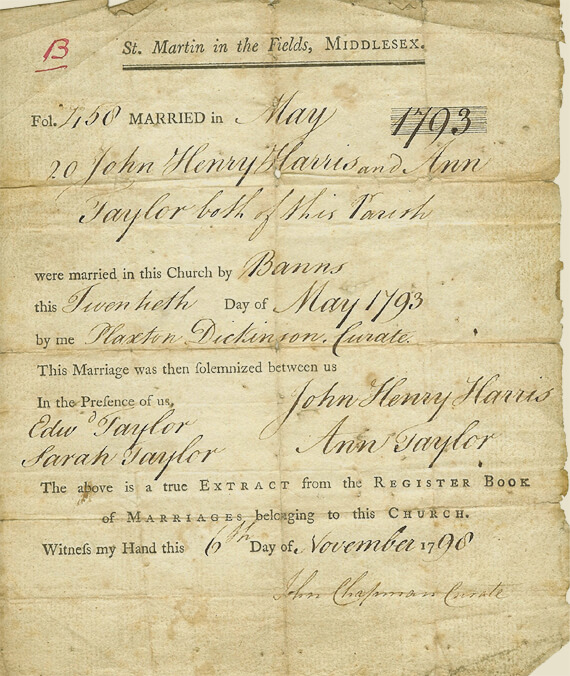 B
St. Martin in the Fields, MIDDLESEX.
Fol. 450 MARRIED in May 1793
20 John Henry Harris and Ann
Taylor both of this Parish
were married in this Church by Banns
this Twentieth Day of May 1793
by me Plaxton Dickinson. Curate.
This Marriage was then ſolemnized between us
In the Preſence of us, John Henry Harris
Edwd Taylor
Sarah Taylor Ann Taylor
The above is a true EXTRACT from the REGISTER BOOK
of MARRIAGES belonging to this CHURCH.
Witneſs my Hand this 6th Day of November 1798
John Chapman Curate